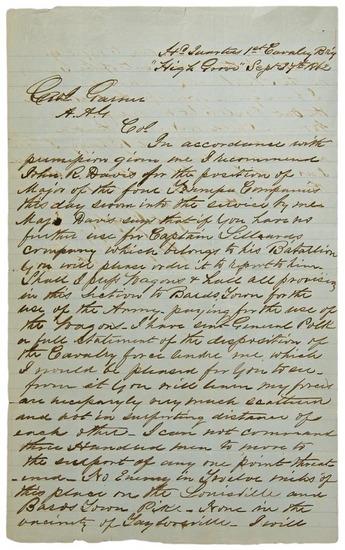 Hd Quarters 1st Cavalry Brig
"High Grove" Sept 27th 1862
Col Garner
A.A.G
Col
In accordance with
permission given me I recommend
John R. Davis for the position of
Major of the four Companies
this day sworn into the service by me
Maj Davis says that if you have no
further use for Captain
company which belongs to his Battalion
you will please order it to report to him.
Shall I press Wagons & haul all provisions
in this section to Bards Town for the
use of the Army. paying for the use of
the Wagons. I have sent General Polk
a full statement of the disposition of
the Cavalry force under me, which
I would be pleased for you to see.
from it you will learn my forces
are necessarily very much scattered
and not in supporting distance of
each other - I can not command
three Hundred men to move to
the support of any one point threat
-ened - No Enemy in twelve miles of
this place on the Louisville and
Bards Town Pike - None in the
vicinity of Taylorsville. I will